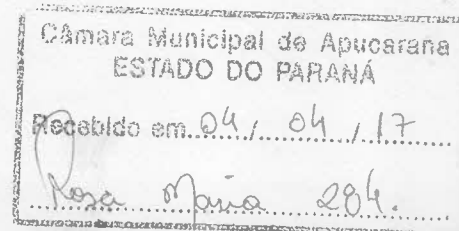 Câmara Municipal de Apucarana
ESTADO DO PARANÁ
Recebido em 04 / 04 / 17
Rosa Maria 284.